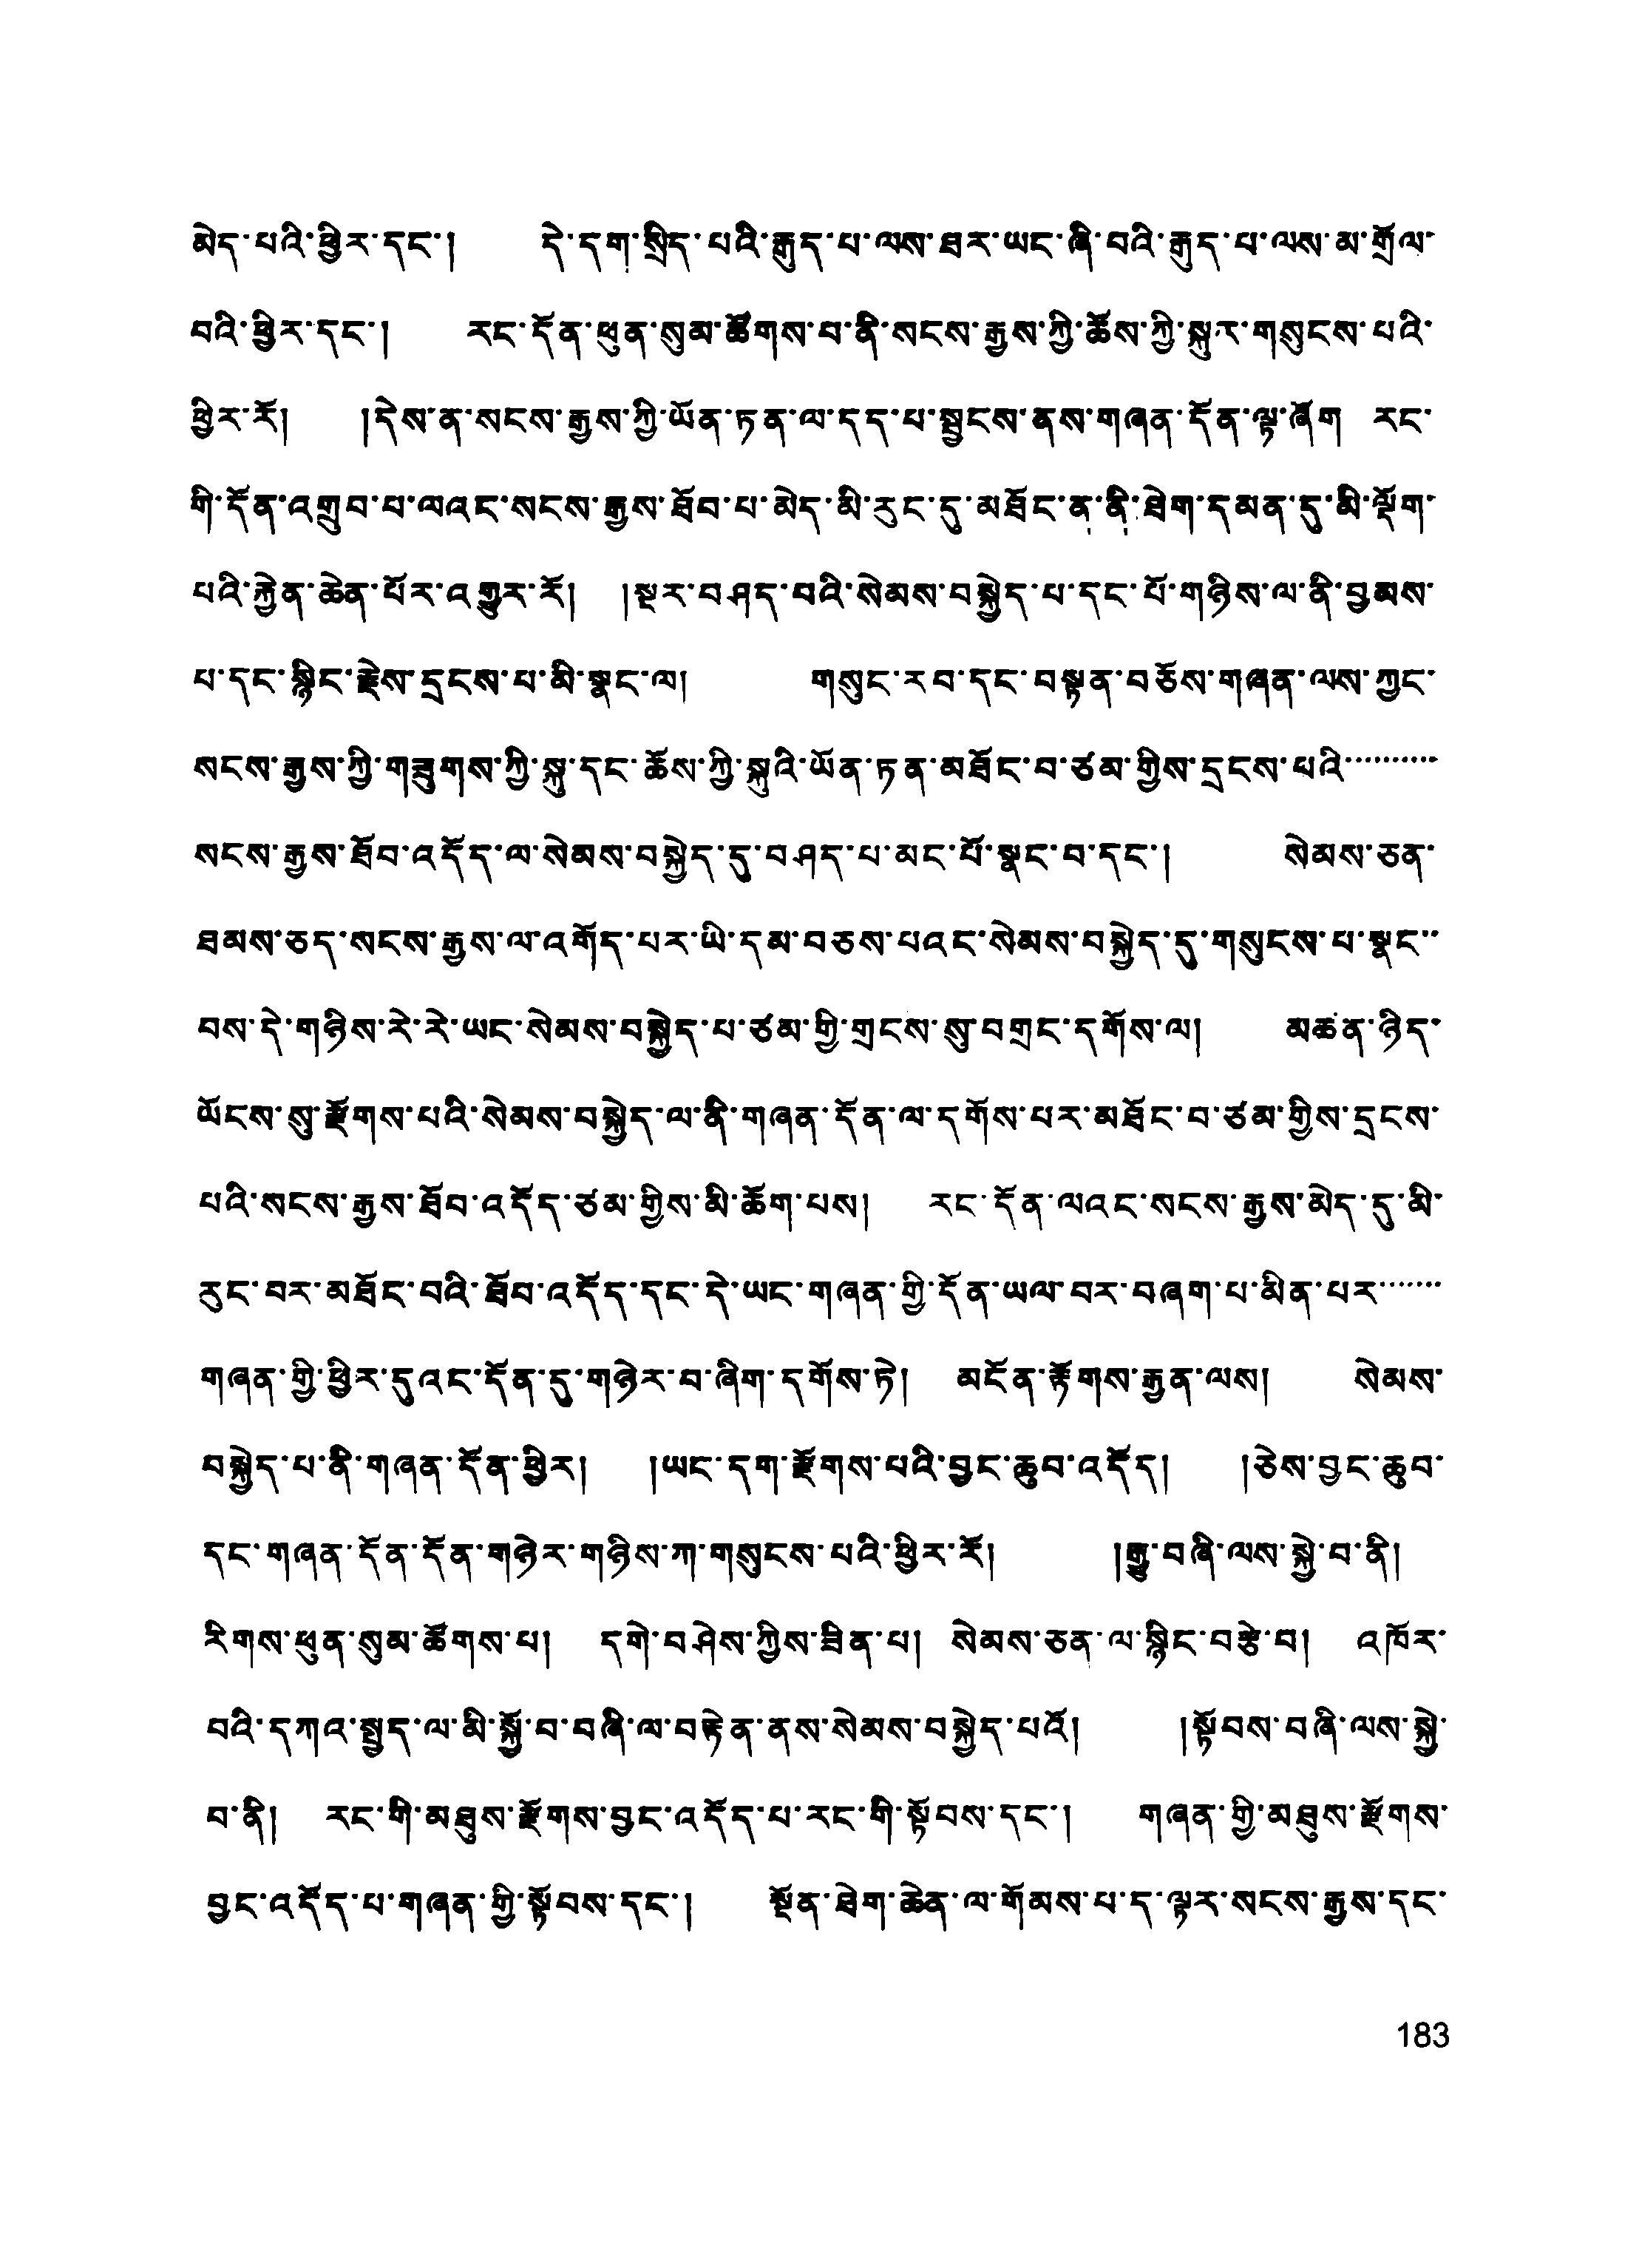 མེད་པའི་ཕྱིར་དང་། དེ་དག་སྲིད་པའི་རྒུད་པ་ལས་ཐར་ཡང་ཞི་བའི་རྒུད་པ་ལས་མ་གྲོལ་
བའི་ཕྱིར་དང་། རང་དོན་ཕུན་སུམ་ཚོགས་བ་ནི་སངས་རྒྱས་ཀྱི་ཆོས་ཀྱི་སྐུར་གསུངས་པའི་
ཕྱིར་རོ། །དེས་ན་སངས་རྒྱས་ཀྱི་ཡོན་ཏན་ལ་དད་པ་སྦྱངས་ནས་གཞན་དོན་ལྟ་ཞོག རང་
གི་དོན་འགྲུབ་པ་ལའང་སངས་རྒྱས་ཐོབ་པ་མེད་མི་རུང་དུ་མཐོང་ན་ནི་ཐེག་དམན་དུ་མི་ལྡོག་
པའི་རྐྱེན་ཆེན་པོར་འགྱུར་རོ། །སྔར་བཤད་བའི་སེམས་བསྐྱེད་པ་དང་པོ་གཉིས་ལ་ནི་བྱམས་
པ་དང་སྙིང་རྗེས་དྲངས་པ་མི་སྣང་ལ། གསུང་རབ་དང་བསྟན་བཅོས་གཞན་ལས་ཀྱང་
སངས་རྒྱས་ཀྱི་གཟུགས་ཀྱི་སྐུ་དང་ཆོས་ཀྱི་སྐུའི་ཡོན་ཏན་མཐོང་བ་ཙམ་གྱིས་དྲངས་པའི་་་་་་་་་་
སངས་རྒྱས་ཐོབ་འདོད་ལ་སེམས་བསྐྱེད་དུ་བཤད་པ་མང་པོ་སྣང་བ་དང་། སེམས་ཅན་
ཐམས་ཅད་སངས་རྒྱས་ལ་འགོད་པར་ཡི་དམ་བཅས་པའང་སེམས་བསྐྱེད་དུ་གསུངས་པ་སྣང་་
བས་དེ་གཉིས་རེ་རེ་ཡང་སེམས་བསྐྱེད་པ་ཙམ་གྱི་གྲངས་སུ་བགྲང་དགོས་ལ། མཚན་ཉིད་
ཡོངས་སུ་རྫོགས་པའི་སེམས་བསྐྱེད་ལ་ནི་གཞན་དོན་ལ་དགོས་པར་མཐོང་བ་ཙམ་གྱིས་དྲངས་
པའི་སངས་རྒྱས་ཐོབ་འདོད་ཙམ་གྱིས་མི་ཆོག་པས། རང་དོན་ལའང་སངས་རྒྱས་མེད་དུ་མི་
རུང་བར་མཐོང་བའི་ཐོབ་འདོད་དང་དེ་ཡང་གཞན་གྱི་དོན་ཡལ་བར་བཞག་པ་མིན་པར་་་་་་་
གཞན་གྱི་ཕྱིར་དུའང་དོན་དུ་གཉེར་བ་ཞིག་དགོས་ཏེ། མངོན་རྟོགས་རྒྱན་ལས། སེམས་
བསྐྱེད་པ་ནི་གཞན་དོན་ཕྱིར། །ཡང་དག་རྫོགས་པའི་བྱང་ཆུབ་འདོད། །ཅེས་བྱང་ཆུབ་
དང་གཞན་དོན་དོན་གཉེར་གཉིས་ཀ་གསུངས་པའི་ཕྱིར་རོ། །རྒྱུ་བཞི་ལས་སྐྱེ་བ་ནི།
རིགས་ཕུན་སུམ་ཚོགས་པ། དགེ་བཤེས་ཀྱིས་ཟིན་པ། སེམས་ཅན་ལ་སྙིང་བརྩེ་བ། འཁོར་
བའི་དཀའ་སྤྱད་ལ་མི་སྐྱོ་བ་བཞི་ལ་བརྟེན་ནས་སེམས་བསྐྱེད་པའོ། །སྟོབས་བཞི་ལས་སྐྱེ་
བ་ནི། རང་གི་མཐུས་རྫོགས་བྱང་འདོད་པ་རང་གི་སྟོབས་དང་། གཞན་གྱི་མཐུས་རྫོགས་
བྱང་འདོད་པ་གཞན་གྱི་སྟོབས་དང་། སྔོན་ཐེག་ཆེན་ལ་གོམས་པ་ད་ལྟར་སངས་རྒྱས་དང་
183